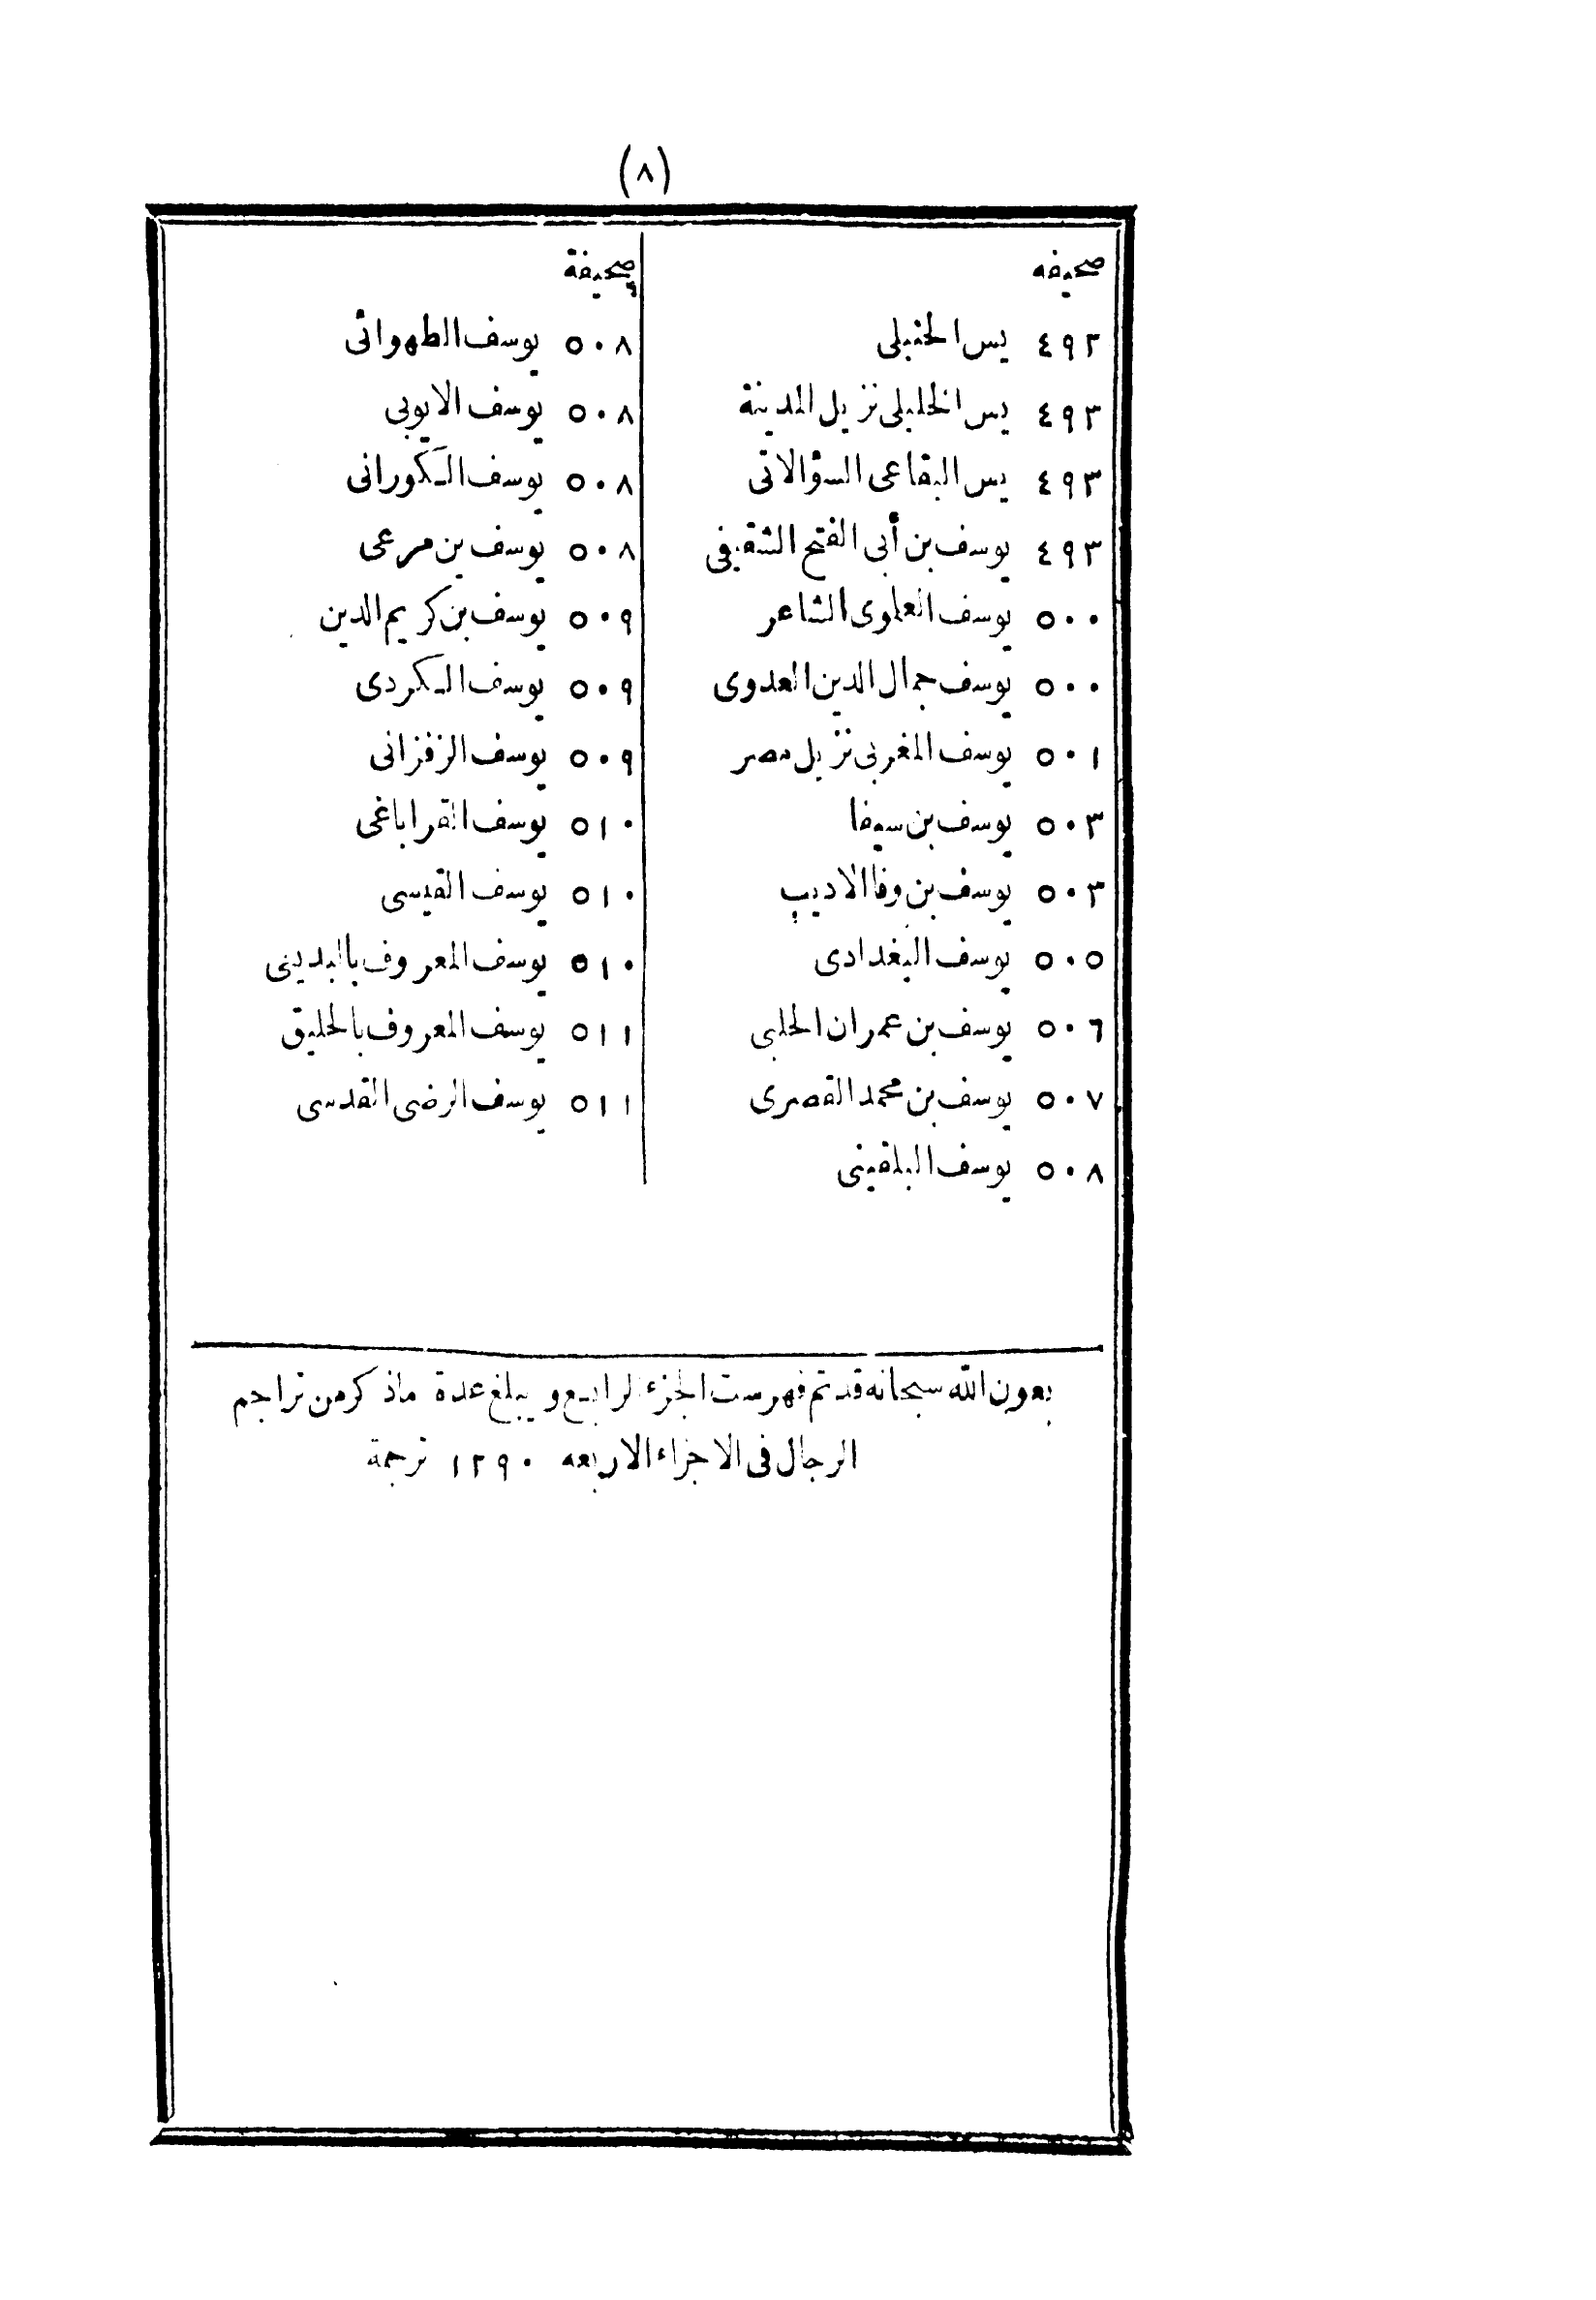 (٨)
صحيفه
٤٩٢ يس الحنبلى
٤٩٣ يس الخليلى نزيل المدينة
٤٩٣ يس البقاعى السؤالاتى
٤٩٣ يوسف بن أبى الفتح الشقيفى
٥٠٠ يوسف العلوى الشاعر
٥٠٠ يوسف جمال الدين العدوى
٥٠١ يوسف المغربى نزيل مصر
٥٠٣ يوسف بن سيفا
٥٠٣ يوسف بن وفا الاديب
٥٠٥ يوسف البغدادى
٥٠٦ يوسف بن عمران الحلبى
٥٠٧ يوسف بن محمد القصرى
٥٠٨ يوسف البلقينى
صحيفة
٥٠٨ يوسف الطهوائى
٥٠٨ يوسف الايوبى
٥٠٨ يوسف الكورانى
٥٠٨ يوسف بن مرعى
٥٠٩ يوسف بن كريم الدين
٥٠٩ يوسف الكردى
٥٠٩ يوسف الزفزانى
٥١٠ يوسف القراباغى
٥١٠ يوسف القيسى
٥١٠ يوسف المعروف بالبدينى
٥١١ يوسف المعروف بالحليق
٥١١ يوسف الرضى القدسى
بعون الله سبحانه قد تم فهرست الجزء الرابع ويبلغ عدة ماذكر من تراجم
الرجال فى الاجزاء الاربعه ١٢٩٠ ترجمة